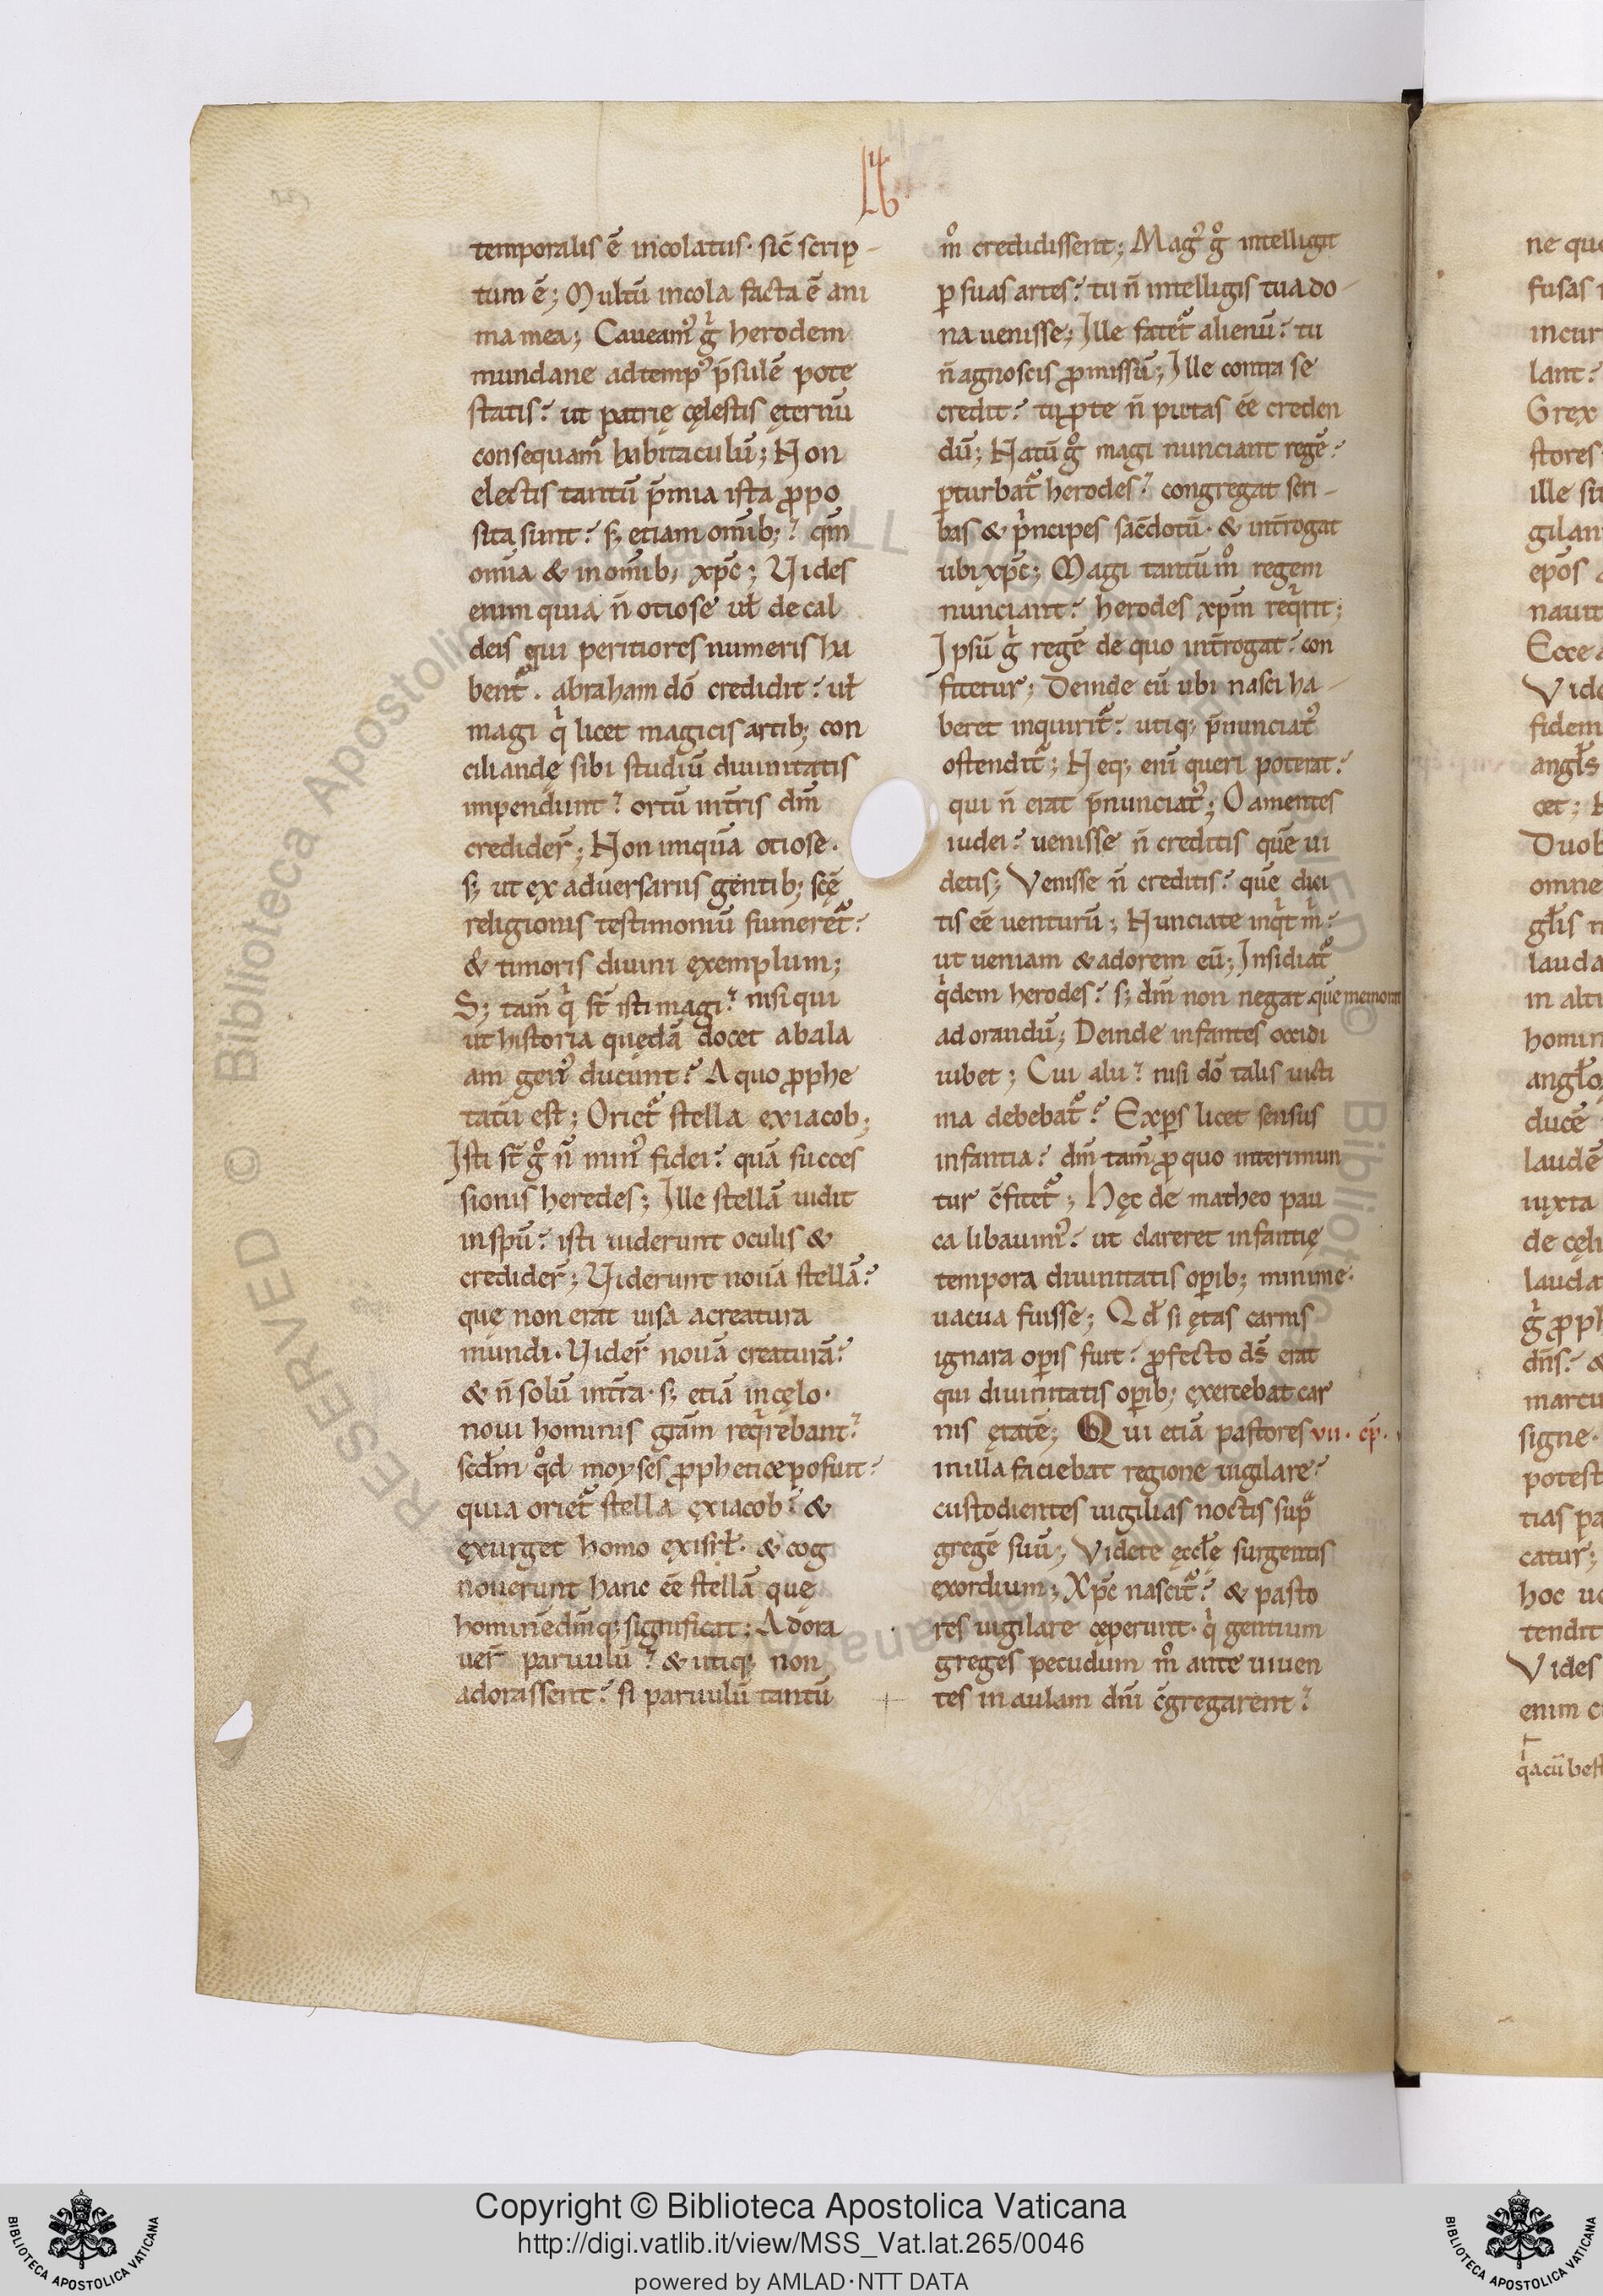 temporalis ē incolatus. sic̄ scrip-
tum ē; Multū incola facta ē ani
ma mea; Caveam᷒ gͥ herodem
mundane ad temp᷒ p̄sulē pote
statis? ut patrię cęlestis ęternū
consequamᷣ habitaculū; Non
electis tantū p̄mia ista ꝓpo
sita sunt? sꝫ etiam om̄ibꝫ? qm̄
om̄ia & in om̄ibꝫ xp̄c; Vides
enim quia n̄ otiose uł de cal
deis qui peritiores numeris ha
bentᷣ. abraham dō credidit? uł
magi qͥ licet magicis artibꝫ con
ciliandę sibi studiū divinitatis
impendunt? ortū int̄ris dm̄
credider̄; Non inquā otiose.
sꝫ ut ex adversariis gentibꝫ scę̄
religionis testimoniū fumeretᷣ?
& timoris divini ęxemplum;
Sꝫ tam̄ qͥ st̄ isti magi? nisi qui
ut historia quędā docet a bala
am gen᷒ ducunt? A quo ꝓphe
tatū est; Orietᷣ stella ex iacob;
Isti st̄ gͦ n̄ min᷒ fidei? quā succes
sionis heredes; Ille stellā vidit
in spū? isti viderunt oculis &
credider̄; Viderunt novā stellā?
quę non erat visa a creatura
mundi. Vider̄ novā creaturā?
& n̄ solū int̄ra. sꝫ etiā in cęlo.
novi hominis gr̄am reqͥrebant?
scđm qͦd moyses ꝓphetice posuit?
quia orietᷣ stella ęx iacob? &
ęxurget homo ęx isrł. & cog
noverunt hanc eē stellā quę
hominē dm̄qꝫ significat; Adora
ver̄ parvulū? & utiqꝫ non
adorassent? si parvulū tantū
mͦ credidissent; Mag᷒ gͦ intelligit
ꝑ suas artes? tu n̄ intelligis tua do-
na venisse; Ille fatetᷣ alienū? tu
n̄ agnoscis ꝓmissū; Ille contra se
credit? tu ꝓ te n̄ putas eē creden
dū; Natū gͦ magi nunciant regē?
ꝑturbatᷣ herodes? congregat scri-
bas & pͥncipes sac̄dotū. & int̄rogat
ubi xp̄c; Magi tantūmͦ regem
nunciant? herodes xp̄m reqͥrit;
Ipsū gͥ regē de quo int̄rogat? con
fitetur; Deinde cū ubi nasci ha-
beret inquiritᷣ? utiqꝫ p̄nunciat᷒
ostenditᷣ; Neqꝫ enī queri poterat?
qui n̄ erat p̄nunciat᷒; O amentes
iudei? venisse n̄ creditis quē vi
detis; Venisse n̄ creditis? quē dici
tis eē venturū; Nunciate inqͥt mͥ?
ut veniam & adorem eū; Insidiatᷣ
qͥdem herodes? sꝫ dm̄ non negat. quē memorat
adorandū; Deinde infantes occidi
iubet; Cui alii? nisi dō talis victi
ma debebatᷣ? Exꝑs licet sensus
infantia? dm̄ tam̄ ꝓ quo interimun
tur c̄fitetᷣ; Hęc de matheo pau
ca libavim᷒? ut clareret infantię
tempora divinitatis oꝑibꝫ minime.
vacua fuisse; Qđ si ętas carnis
ignara oꝑis fuit? ꝓfecto ds̄ erat
qui divinitatis oꝑibꝫ ęxercebat car
nis ętatē; Qui etiā pastores vii. cp̄.
in illa faciebat regione vigilare?
custodientes vigilias noctis supᷓ
gregē suū; Videte ęccłę surgentis
exordium; Xp̄c nascitᷣ? & pasto
res vigilare cęperunt. qͥ gentium
greges pecudum mͦ ante viven
tes in aulam dn̄i c̄gregarent?
Copyright © Biblioteca Apostolica Vaticana
http://digi.vatlib.it/view/MSS_Vat.lat.265/0046
powered by AMLAD·NTT DATA
BIBLIOTECA APOSTOLICA VATICANA
BIBLIOTECA APOSTOLICA VATICANA